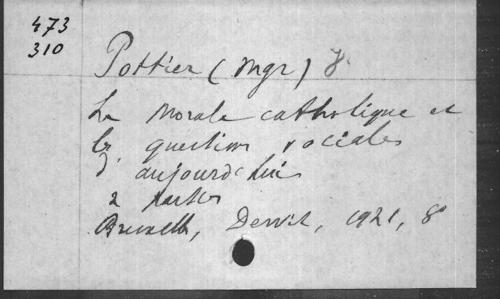 473
310
Pottier (Mgr)
La Morale catholique et
les question sociales
d'aujourd'hui
2 parties
Bruxelles, Dewit, 1921, 8°